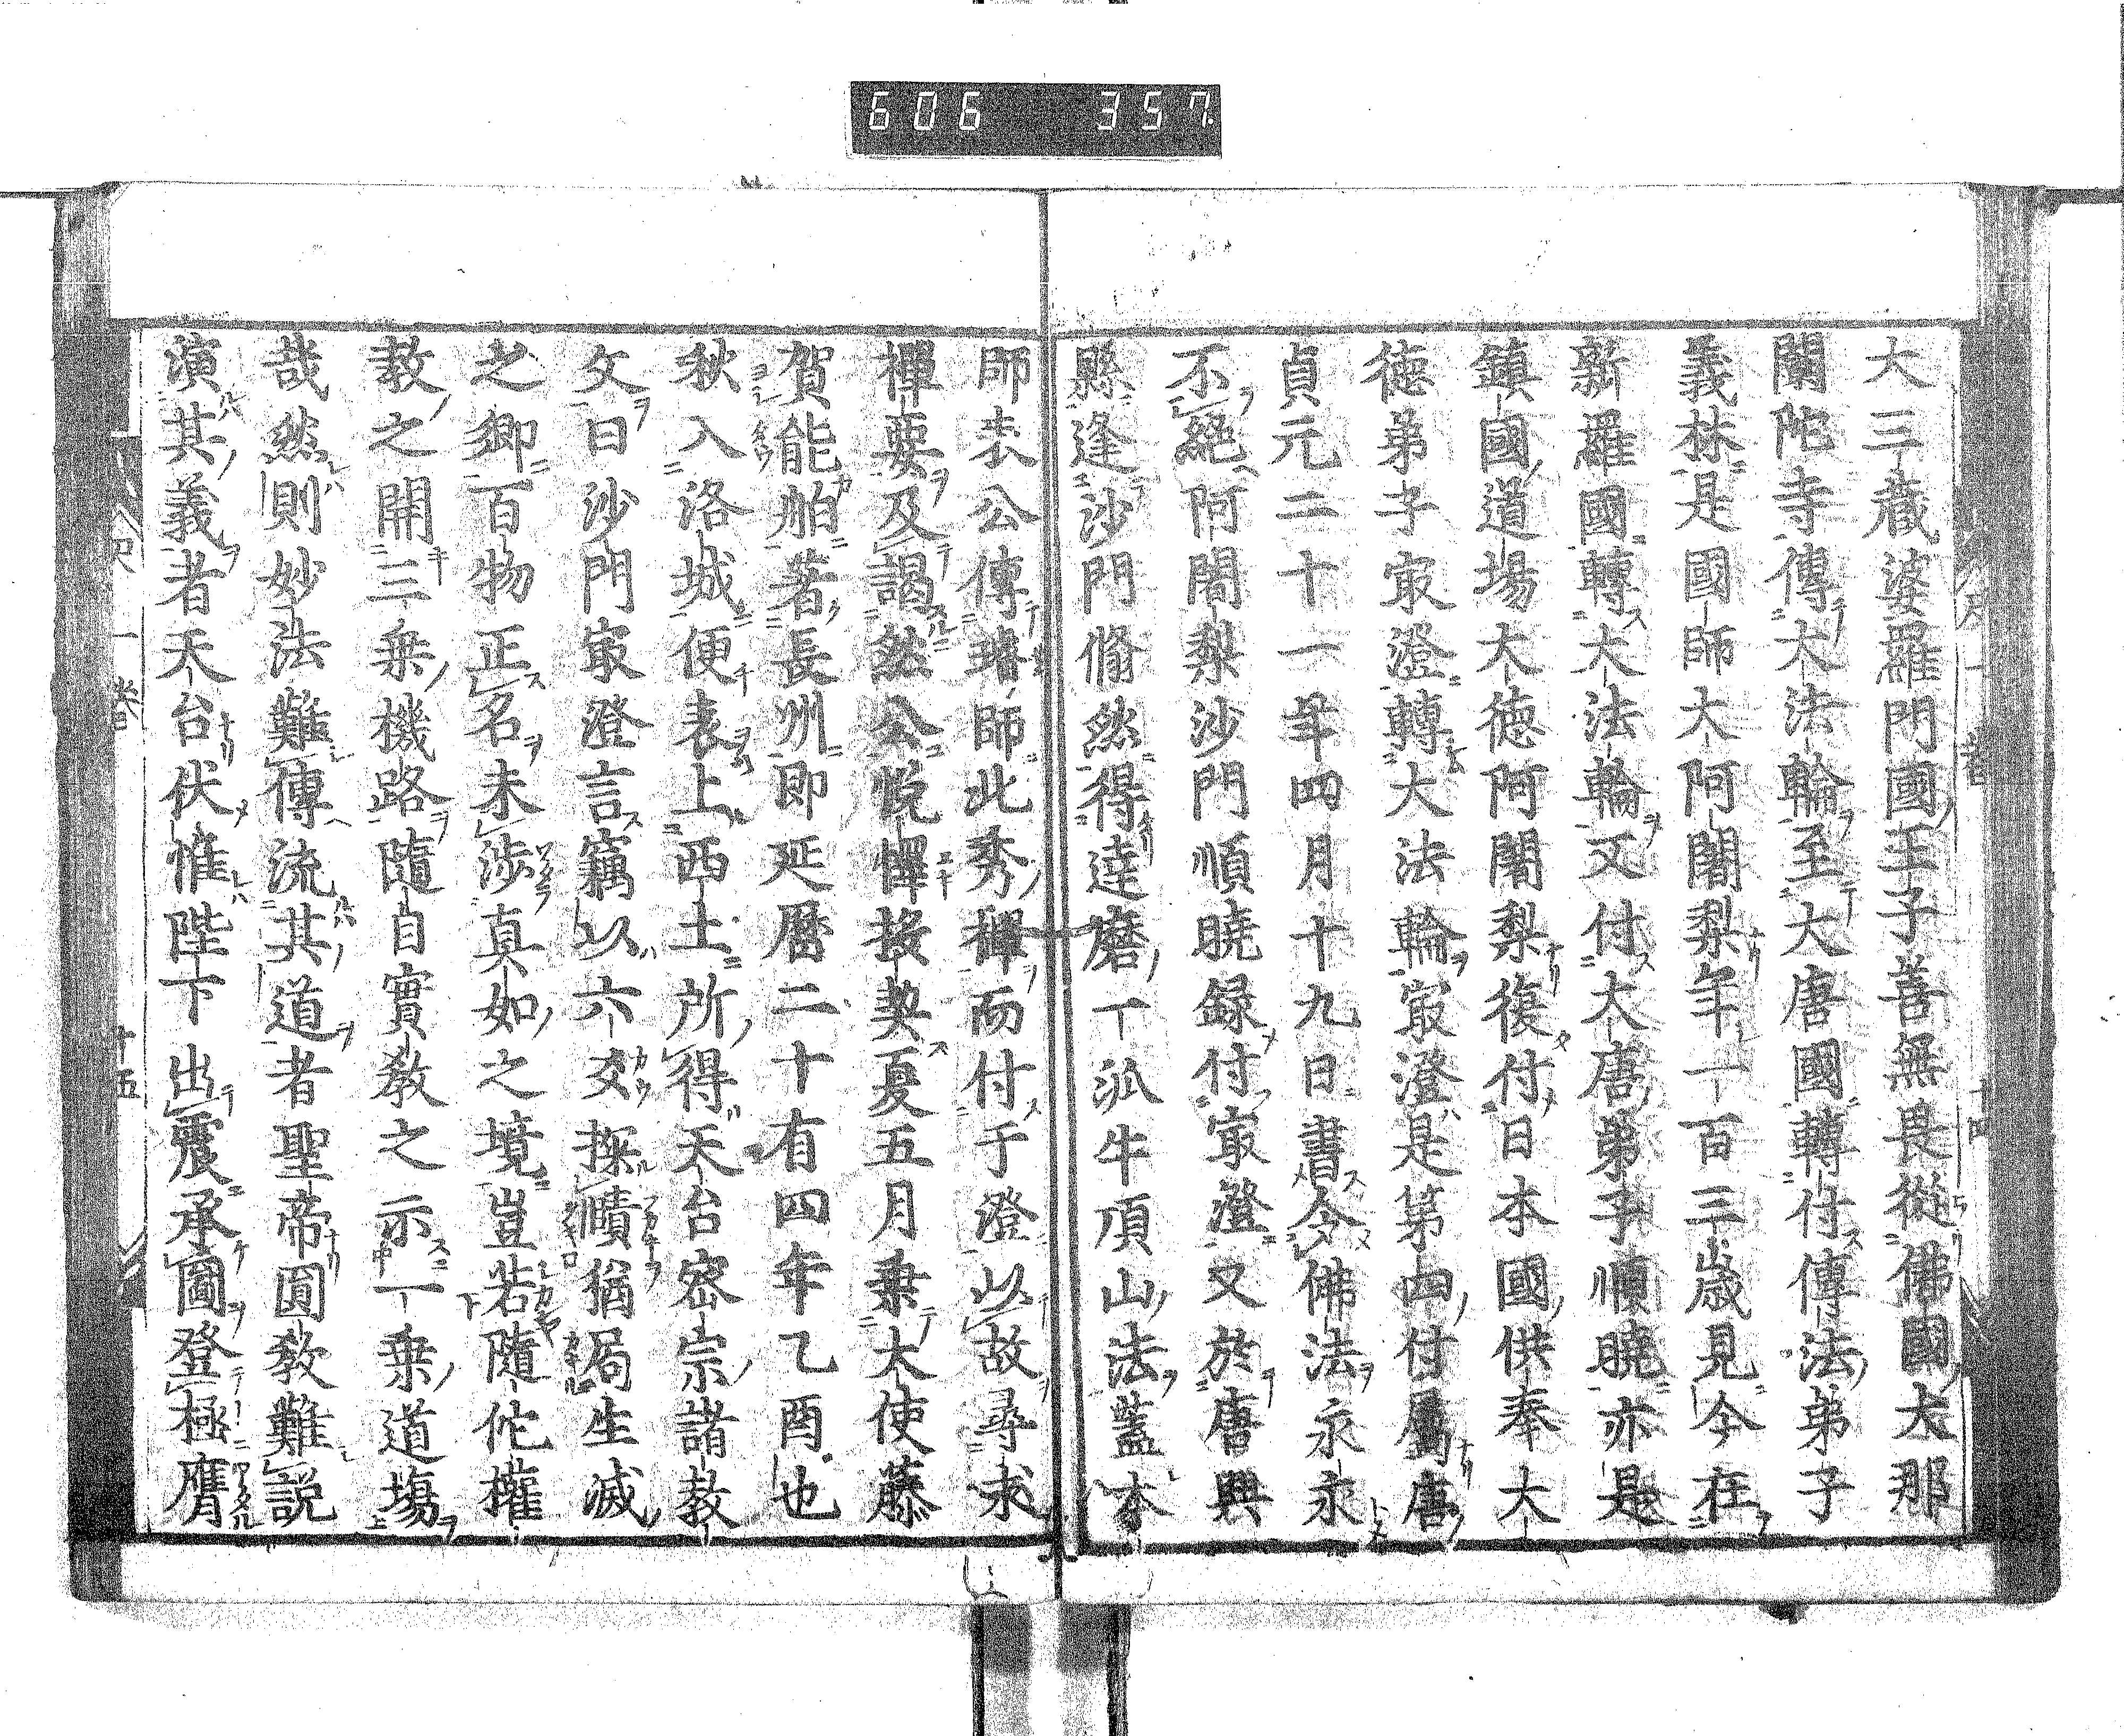 606 357
大三藏婆羅門國王子善無畏從佛國大那
蘭陀寺傳大法輪至大唐國轉付傳法弟子
義林是國師大阿闍梨年一百三歲見今在
新羅國轉大法輪又付大唐弟子順曉亦是
鎮國道場大德阿闍梨復付日本國供奉大
德弟子㝡澄轉大法輪㝡澄是第四付屬唐
貞元二十一年四月十九日書令佛法永永
不絕阿闍梨沙門順曉錄付㝡澄又於唐興
縣逢沙門翛然得達磨一派牛頂山法蓋本
師表公傳璿師此秀禪而付于澄以故尋求
禪要及謁然公悅懌授契夏五月乗大使藤
賀能舶著長州即延曆二十有四年乙酉也
秋入洛城便表上西土所得天台密宗諸教
文曰沙門㝡澄言竊以六爻探賾猶局生滅
之鄉百物正名未涉真如之境豈若隨佗權
教之開三乗機路隨自實教之示一乗道場
哉然則妙法難傳流其道者聖帝圓教難説
演其義者天台伏惟陛下出震承圖登極膺